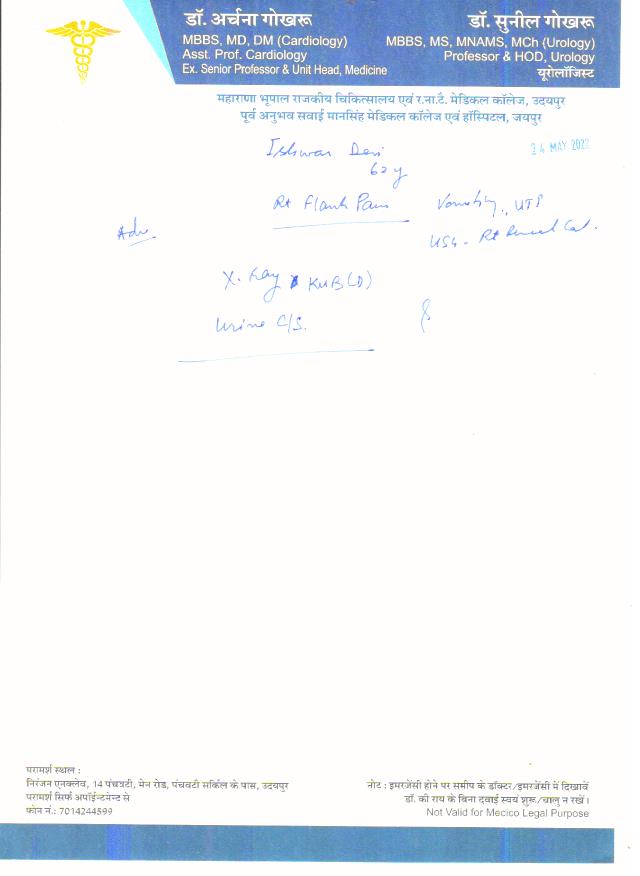 डॉ. अर्चना गोखरू
MBBS, MD, DM (Cardiology)
Asst. Prof. Cardiology
Ex. Senior Professor & Unit Head, Medicine
डॉ. सुनील गोखरू
MBBS, MS, MNAMS, MCh (Urology)
Professor & HOD, Urology
यूरोलॉजिस्ट
महाराणा भूपाल राजकीय चिकित्सालय एवं र.ना.टै. मेडिकल कॉलेज, उदयपुर
पूर्व अनुभव सवाई मानसिंह मेडिकल कॉलेज एवं हॉस्पिटल, जयपुर
24 MAY 2022
Ishwar Devi
62 y
Rt Flank Pain
Vomiting, UTI
USG - Rt Renal Cal.
Adv.
X. Ray KUB (D)
Urine C/S.
परामर्श स्थल :
निरंजन एनक्लेव, 14 पंचवटी, मेन रोड, पंचवटी सर्किल के पास, उदयपुर
परामर्श सिर्फ अपॉईन्टमेन्ट से
फोन नं.: 7014244599
नोट : इमरजेंसी होने पर समीप के डॉक्टर/इमरजेंसी में दिखावें
डॉ. की राय के बिना दवाई स्वयं शुरू/चालु न रखें।
Not Valid for Mecico Legal Purpose